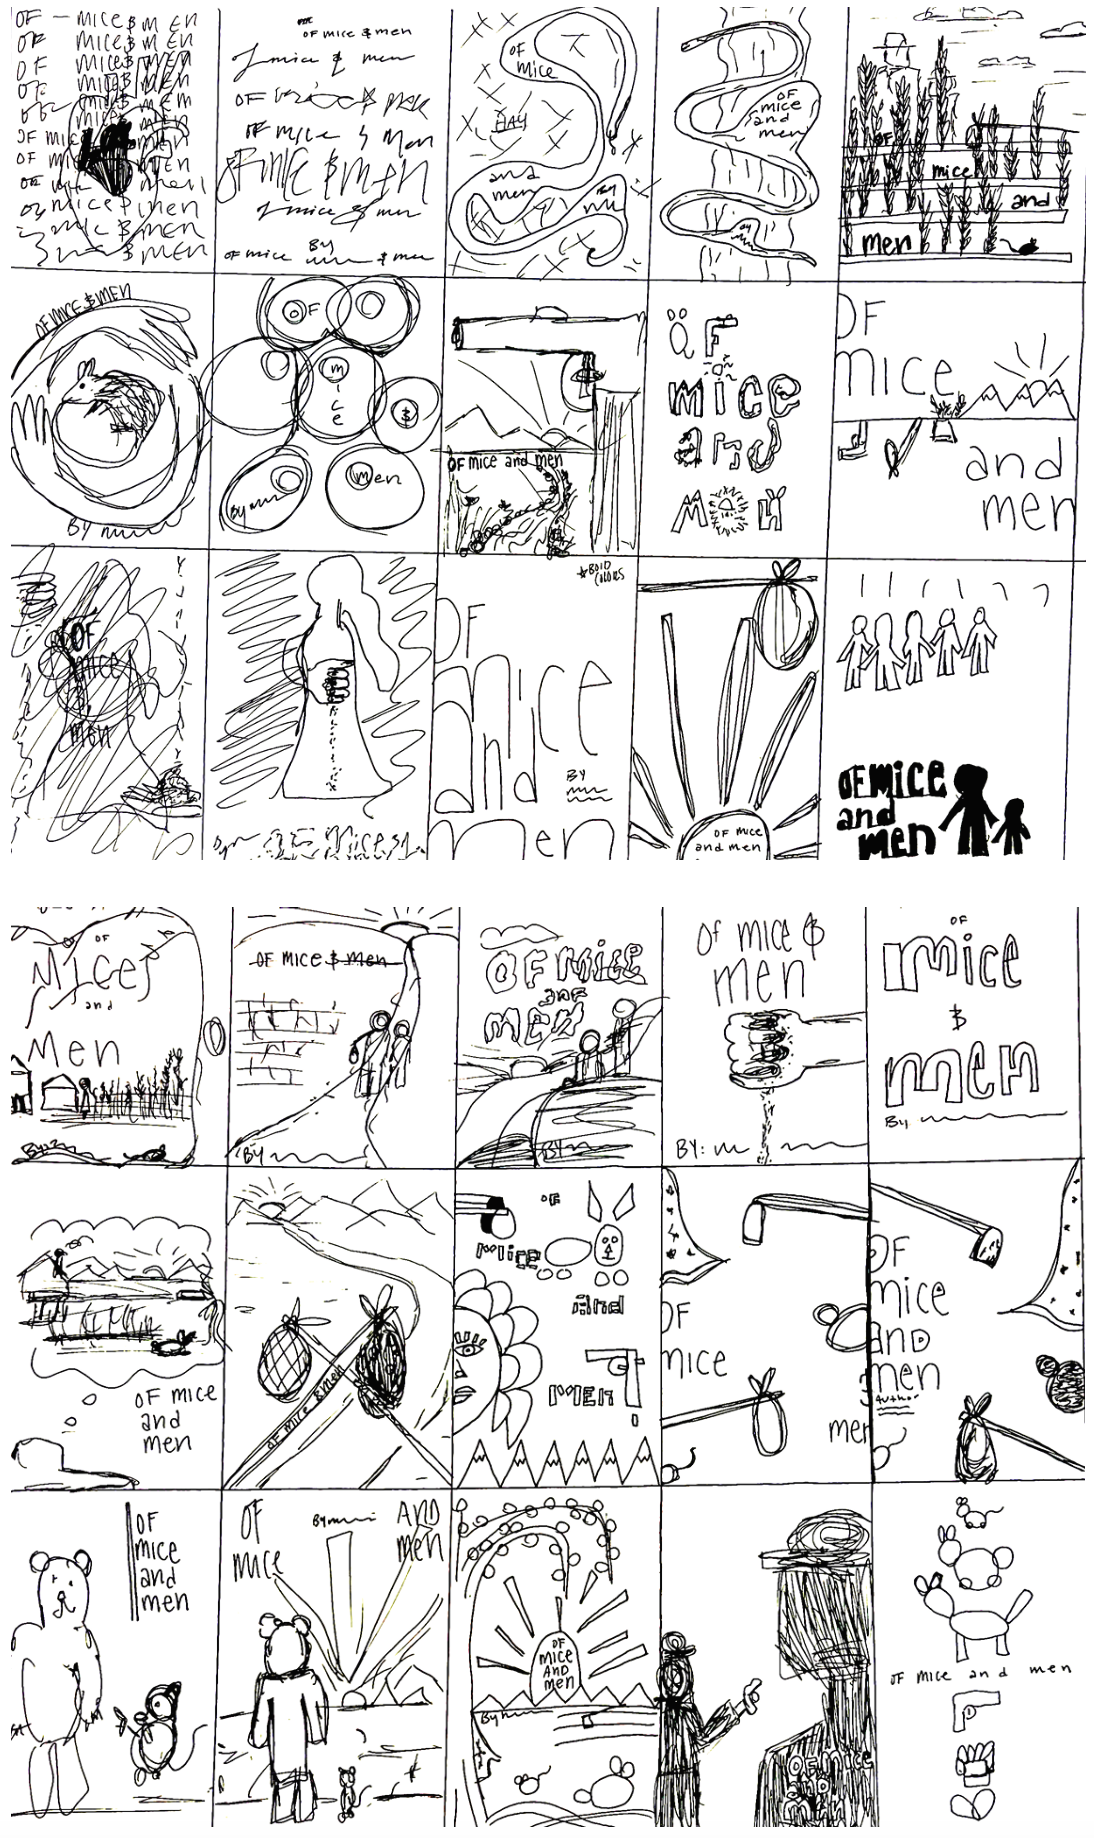 OF - mice $ m En
OF mice $ m En
OF mice $ m En
OF mice $ m En
OF mice $ m En
OF mice $ men
OF mice $ men
OF mice $ men
OF men
OF mice $ men
mice $ men
$ MEN
OF mice $ men
Of mice & men
OF
OF mice $ Men
OF MICE $ MEN
Of mice & men
BY
OF mice $ men
OF
mice
HAY
and
men
OF
mice
and
men
OF
mice
and
men
OF MICE $ MEN
BY
OF
m
i
c
e
$
men
By
OF mice and men
OF
mice
and
MEN
OF
mice
and
men
OF
mice
$
men
OF mice $
★BOLD
COLORS
OF
mice
and
men
BY
OF mice
and men
OF mice
and
men
OF
MICE
and
Men
By
OF mice $ men
BY
OF mice
and
men
BY
Of mice $
men
BY:
OF
mice
$
men
By
OF mice
and
men
OF mice & men
OF
Mice
And
MEN
OF
mice
men
OF
mice
AND
men
Author
OF
mice
and
men
OF
mice
By
AND
men
OF
mice
AND
men
By
OF mice
and
men
OF mice and men